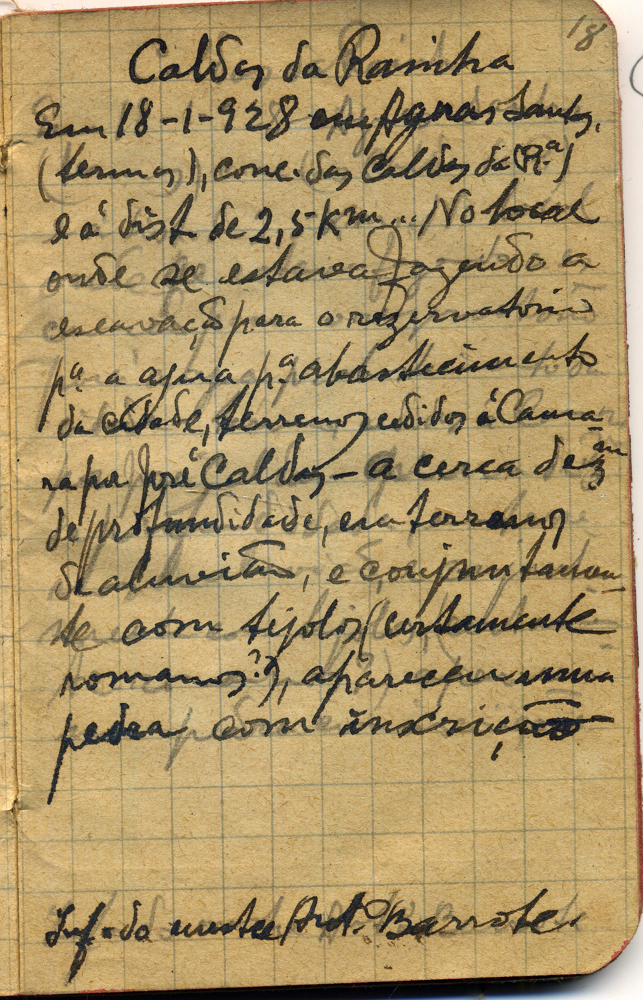 18
Caldas da Rainha
Em 18-1-928 em Aguas Santas,
(termas), conc. das Caldas da (R.ª)
e á dist de 2,5 km... No local
onde se estava fazendo a
escavação para o rezervatorio
pª. a agua pª. abastecimento
da cidade, terrenos cedidos á Cama-
ra por José Caldas - a cerca de 3m
de profundidade, em terrenos
de aluvião, e conjuntamen-
te com tijolos (certamente
romanos??), apareceu uma
pedra com inscrição
Inf. do mestre Antº. Barrote.